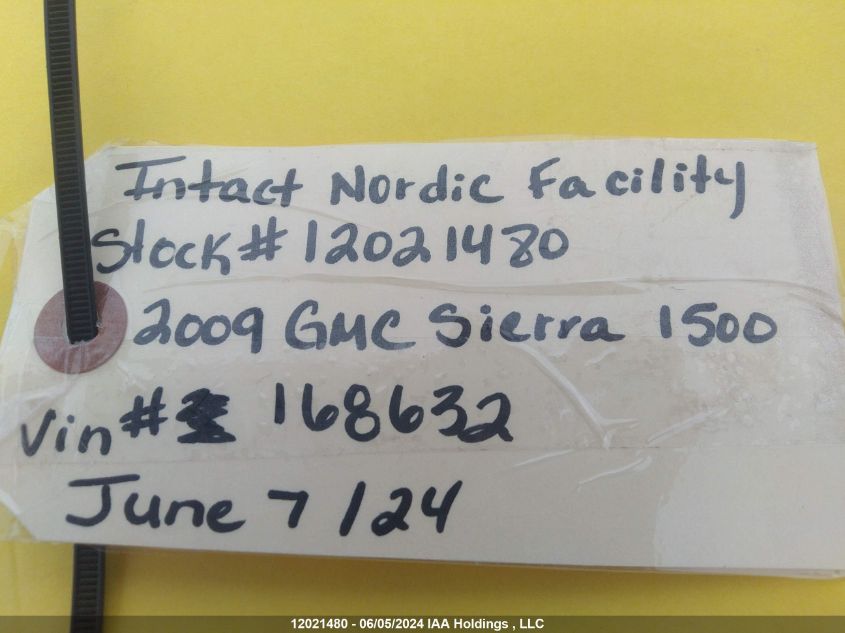 Intact Nordic Facility
Stock# 12021480
2009 GMC Sierra 1500
Vin# 168632
June 7/24
12021480 - 06/05/2024 IAA Holdings , LLC